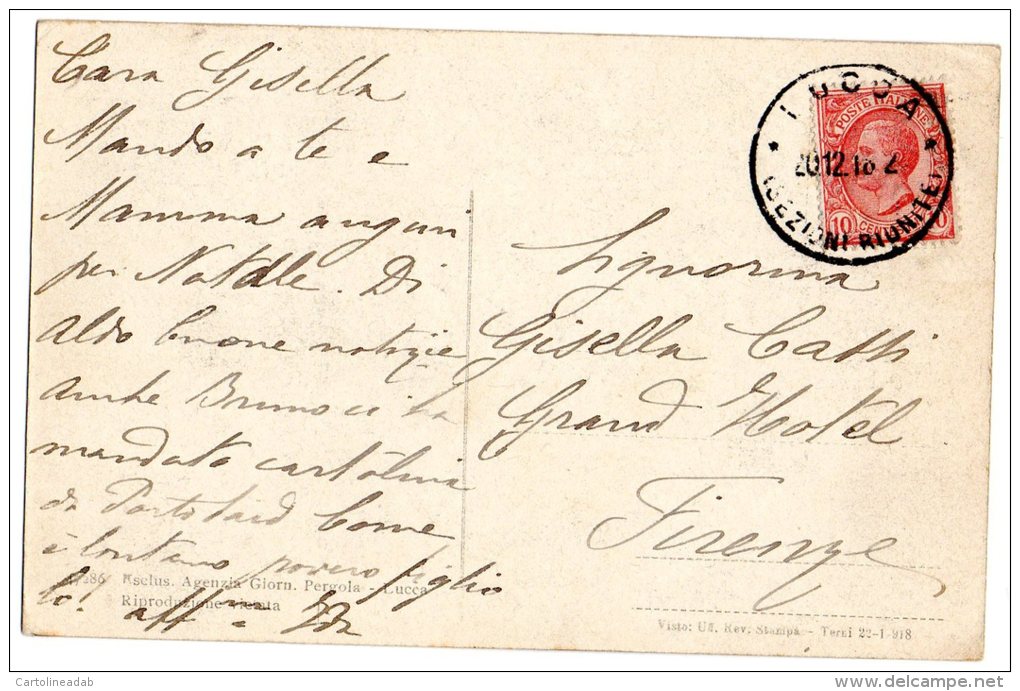 Cara Gisella
Mando a te e
Mamma auguri
per Natale. Di
Aldo buone notizie
anche Bruno ci ha
mandato cartolina
da Portosaid Come
è lontano povero figlio
aff
286 Esclus. Agenzia Giorn. Pergola - Lucca
Riproduzione vietata
LUCCA
20.12.18 2
(SEZIONI RIUNITE)
POSTE ITALIANE
10 CENT 10
Signorina
Gisella Catti
Grand Hotel
Firenze
Visto: Uff. Rev. Stampa - Terni 22-1-918
Cartolineadab
www.delcampe.net